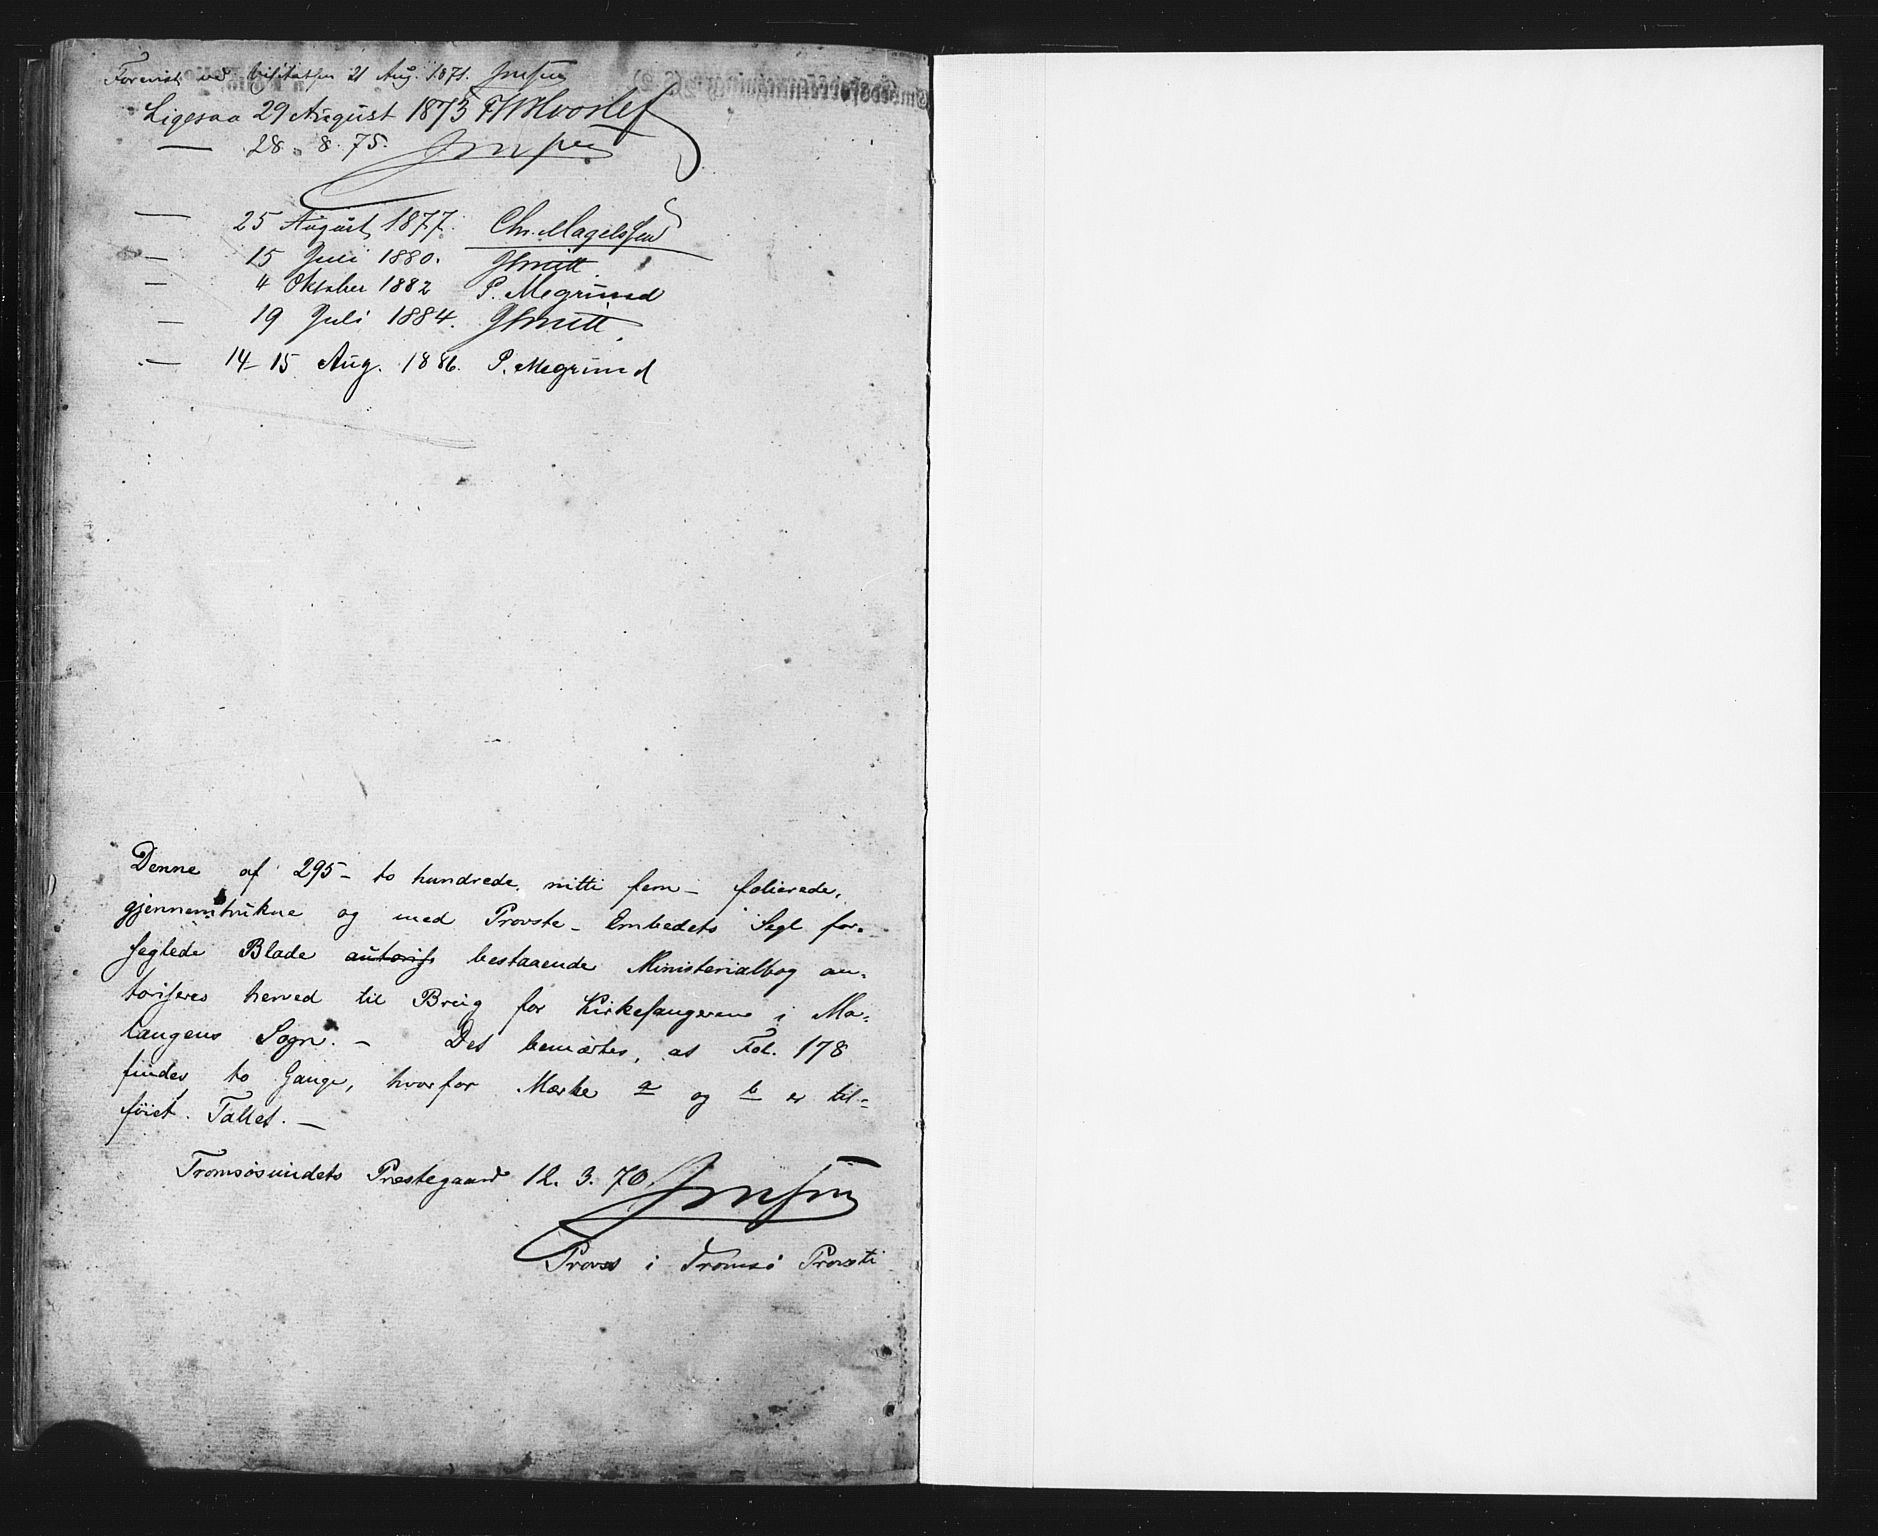 Forevist ved Visitatsen 21 Aug. 1871. Jensen
Ligesaa 29 August 1873 FWHvoslef
— 28. 8. 75. Jensen
— 25 August 1877. Chr. Magelssen
— 15 Juli 1880. JSmitt
— 4 Oktober 1882 P. Megrund
— 19 Juli 1884. JSmitt
— 14-15 Aug. 1886. P. Megrund
Denne af 295 - to hundrede nitti fem - folierede,
gjennemtrukne og med Provste-Embedets Segl for-
seglede Blade autoris bestaaende Ministerialbog au-
toriseres herved til Brug for Kirkesangerene i Ma-
langens Sogn. — Det bemærkes, at Fol. 178
findes to Gange, hvorfor Mærke a og b er til-
føiet Tallet. —
Tromsøsundets Præstegaard 12. 3. 70.
Jensen
Provst i Tromsø Provsti